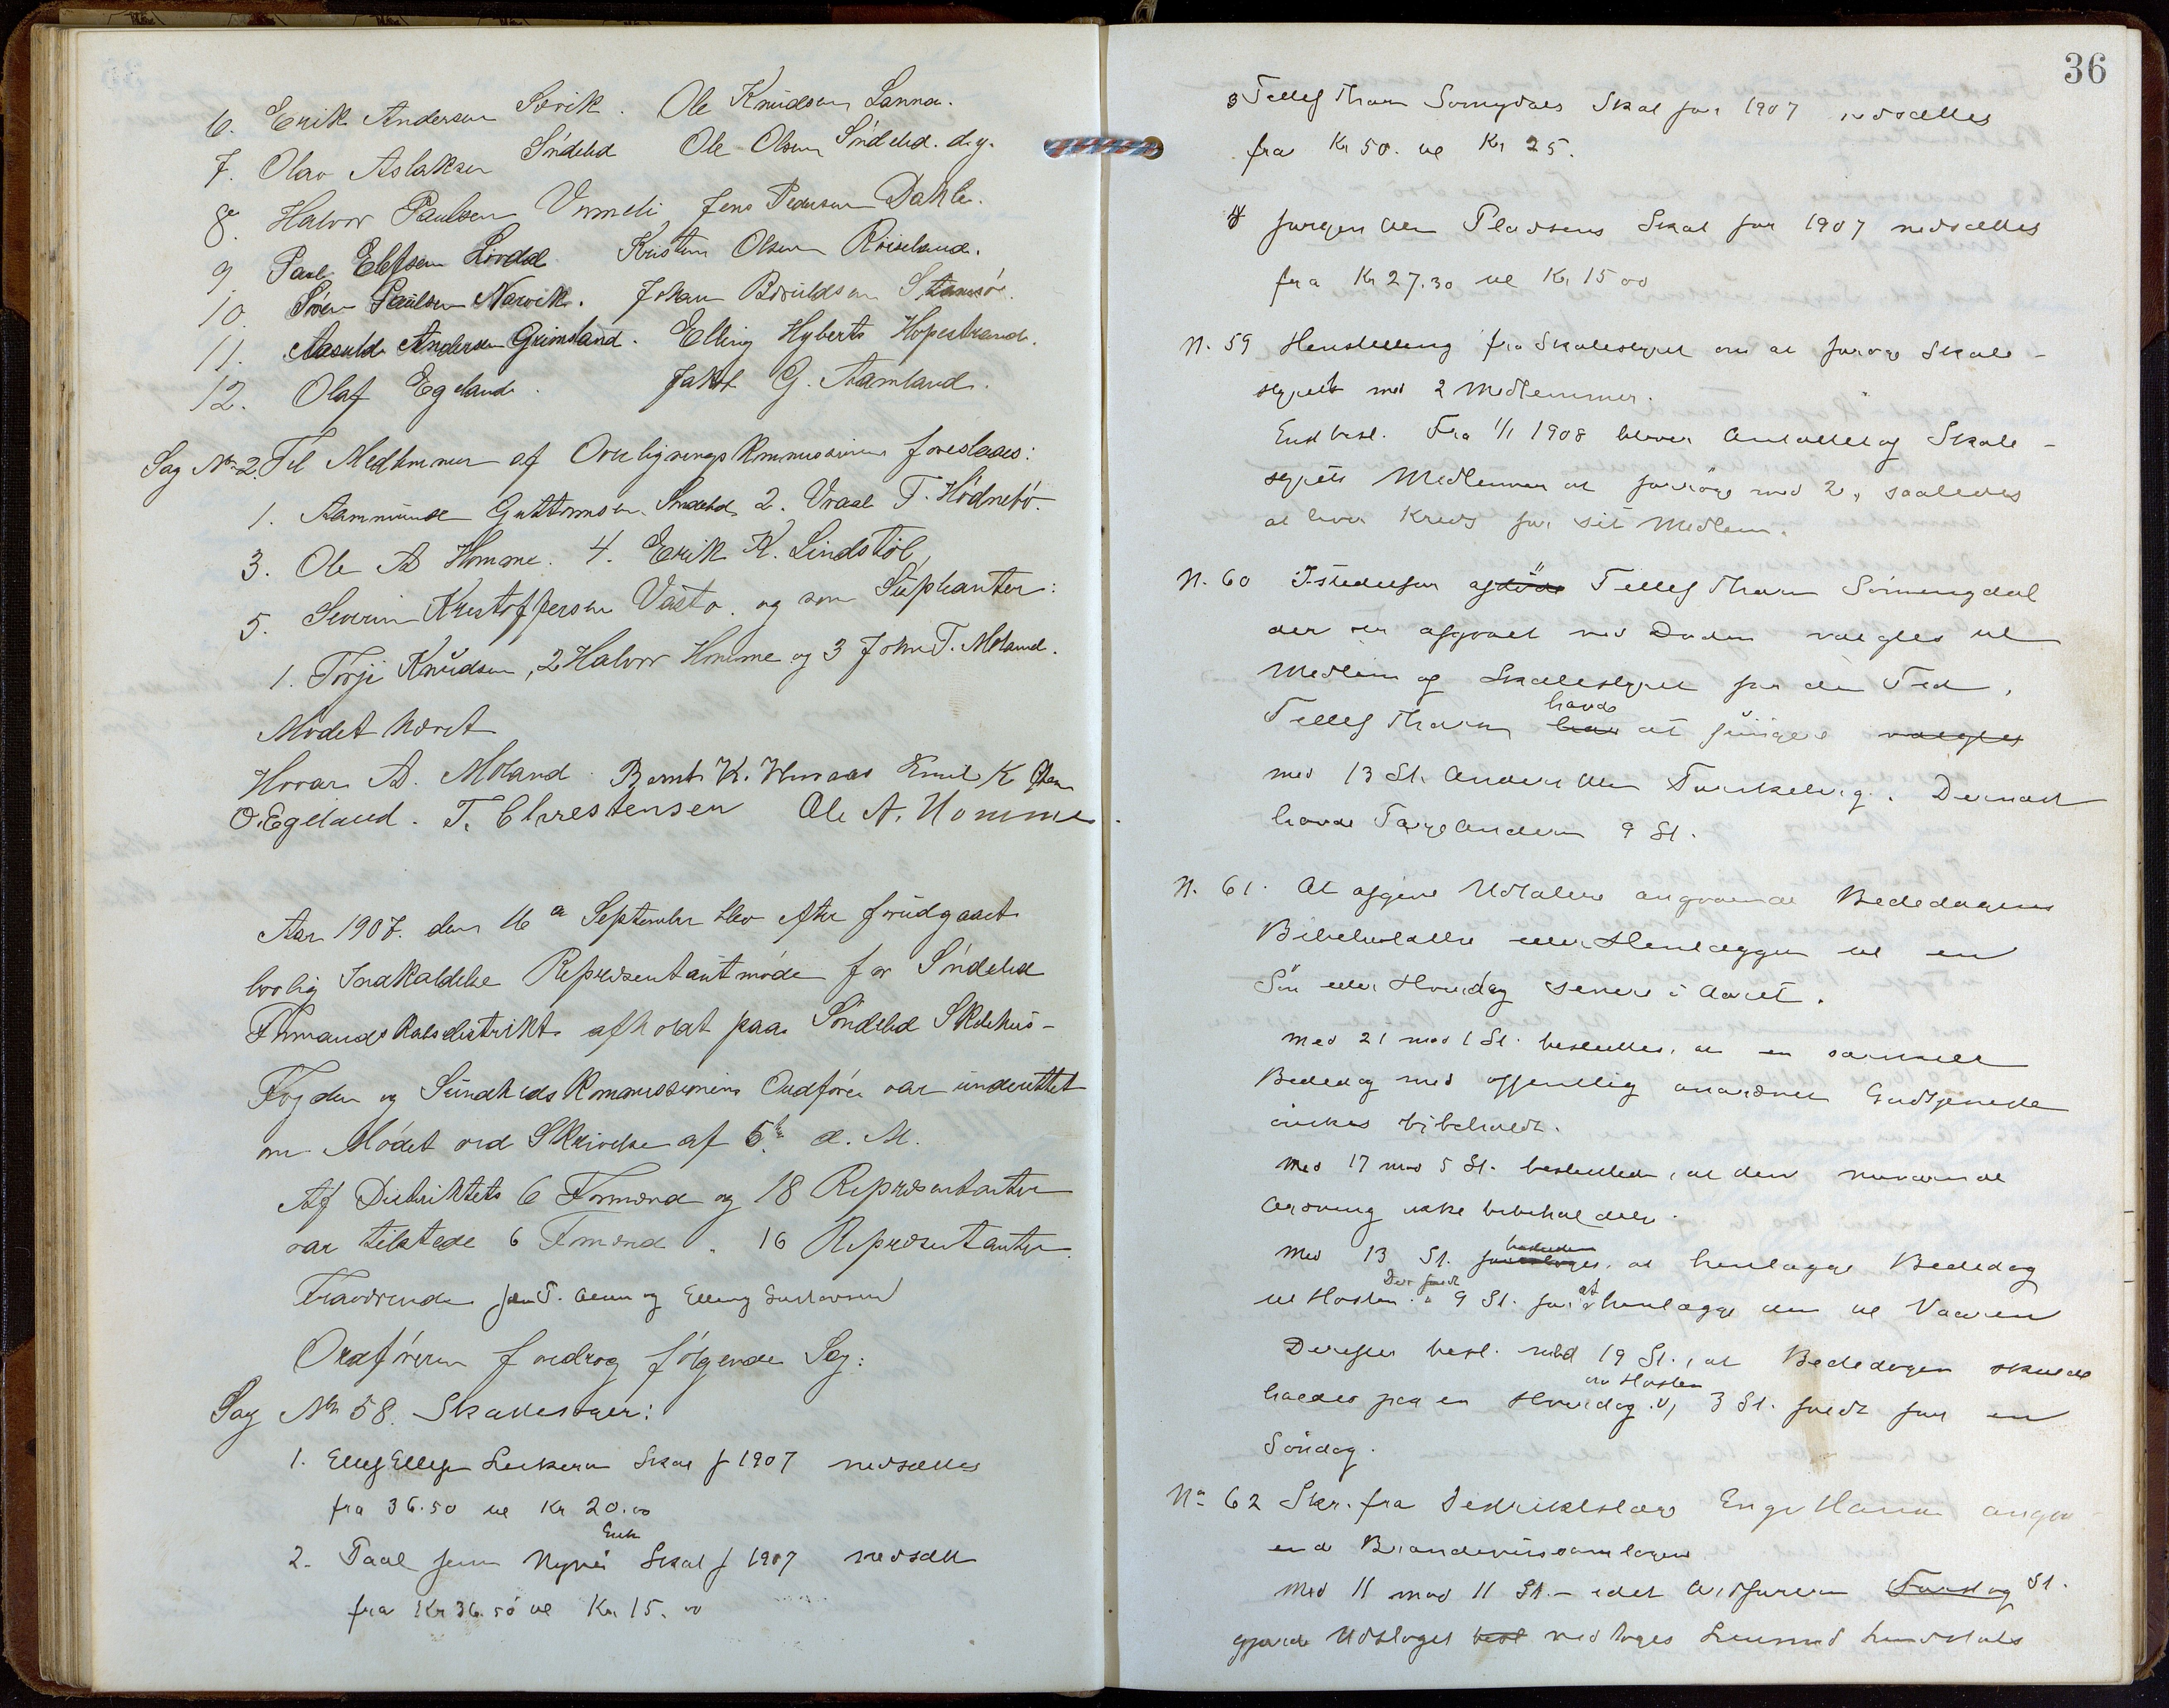 6. Erik Andersen Sivik. Ole Knudsen Sanna.
7. Olav Aslaksen Söndeled Ole Olsen Söndeled. d.y.
8. Halvor Paulsen Vormeli Jens Pedersen Dahle.
9 Paul Elefsen Lövdal Kristen Olsen Röiseland.
10. Sören Paulsen Narvik. Johan Stamsö.
11. Aasuld Andersen Grimsland. Elling Hyberts Hopestrand.
12. Olaf Egeland. Jakob G. Aamland.
Sag No 2. Til Medlemmer af Overligningskommissionen foreslaaes:
1. Aanmund Guttormsen Söndeled 2. Vraal T. Hödnebö.
3. Ole A Homme. 4. Erik K. Lindstöl,
5. Severin Kristoffersen Vasto. og som Suppleanter:
1. Torje Knudsen, 2 Halvor Homme og 3 John T. Moland.
Mödet hævet
Hovar A. Moland. Bernt K. Emil K
O. Egeland. T. Chrestensen Ole A. Homme.
Aar 1907. den 16de September blev efter forudgaaet
lovlig Indkaldelse Repræsentantmöde for Söndeled
Formandskabsdistrikt afholdt paa Söndeled Skolehus-
Fogden og Sundhedskommissionens Ordförer var underrettet
om Mödet ved Skrivelse af 5te d. M.
Af Distriktets 6 Formænd og 18 Repræsentanter
var tilstede 6 Formænd. 16 Repræsentanter.
Fraværende Jens T. og Elling
Ordföreren foredrog fölgende Sag:
Sag No 58. Skattesager:
1. Ellef Ellefsen Skat f 1907 nedsættes
fra 36.50 til Kr 20.00
2. Paal Jensen Nyvei Skat f 1907 nedsættes
fra Kr 36.50 til Kr. 15.00
36
3 Tellef Thorsen Skat for 1907 nedsættes
fra Kr 50. til Kr 25.
4 Jörgen Pladsens Skat for 1907 nedsættes
fra Kr 27.30 til Kr. 15 00
N. 59 Henstilling fra Skolestyret om at foröge Skole-
styret med 2 Medlemmer.
Enst besl. Fra 1/1 1908 bliver Antallet af Skole-
styrets Medlemmer at foröge med 2, saaledes
at hver Kreds faar sit Medlem.
N. 60 Istedetfor afdöde Tellef Thorsen
der er afgaaet ved Döden valgtes til
Medlem af Skolestyret for den Tid,
Tellef Thorsen har havde at fungere valgtes
med 13 St. Anders Olsen. Dernæst
havde Anders 9 St.
N. 61. At afgive Udtalelse angaaende Bededagens
Bibeholdelse eller Henlæggen til en
Sön eller Hverdag senere i Aaret.
Med 21 mod 1 St. besluttes, at en særskilt
Bededag med offentlig anordnet Gudstjeneste
önskes bibeholdt.
Med 17 mod 5 St. besluttedes, at den nuværende
Ordning ikke bibeholdes.
Med 13 St. besluttedes, at henlægge Bededag
til Hösten. 9 St. for at henlægge den til Vaaren
Derefter besl. med 19 St., at Bededagen skulde
holdes paa en Hverdag om Hösten, 3 St. for en
Söndag.
No 62 Skr. fra Distriktslæge angaa-
ende Brændevinssamlagene
Med 11 mod 11 St. - idet Ordförerens St.
gjorde Udslaget